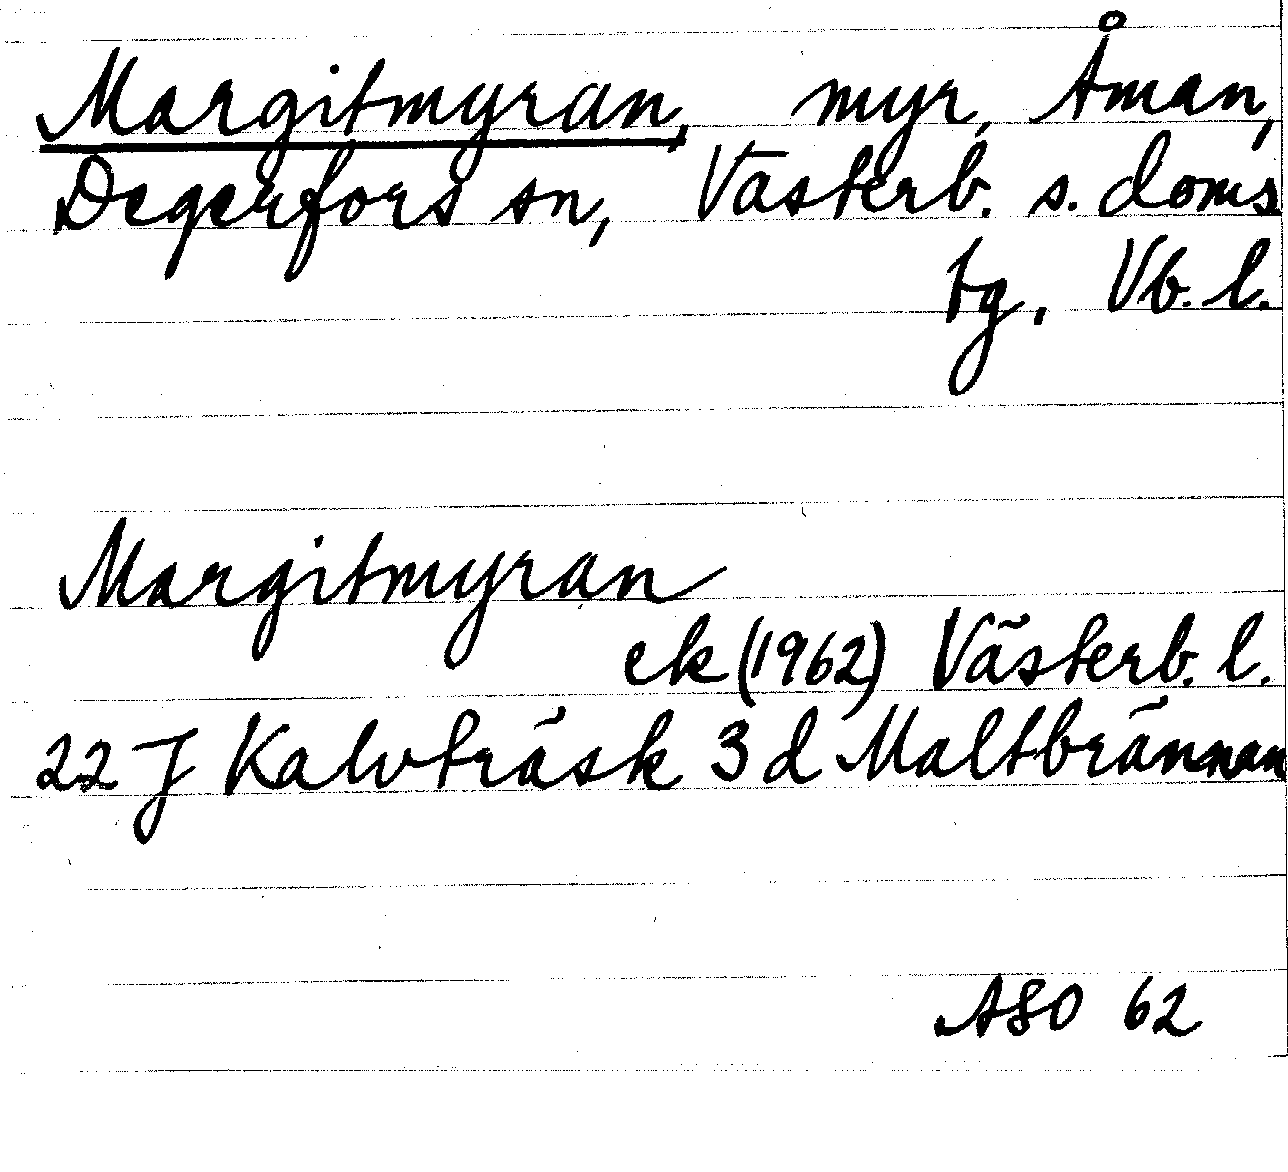 Margitmyran, myr, Åman,
Degerfors sn, Västerb. s. doms
tg. Vb. l.
Margitmyran
ek (1962) Västerb. l.
22 J Kalvträsk 3 d Maltbrännan
ASO 62